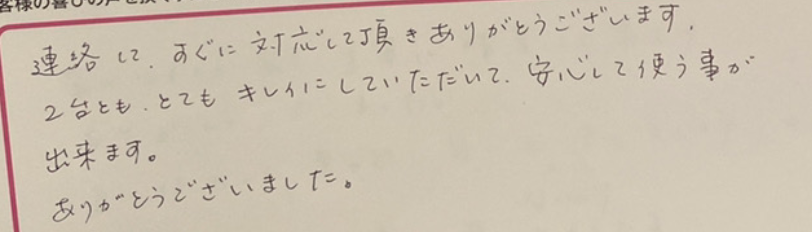 客様の喜びの声を頂
連絡して、すぐに対応して頂きありがとうございます。
2台とも、とても キレイにしていただいて、安心して使う事が
出来ます。
ありがとうございました。